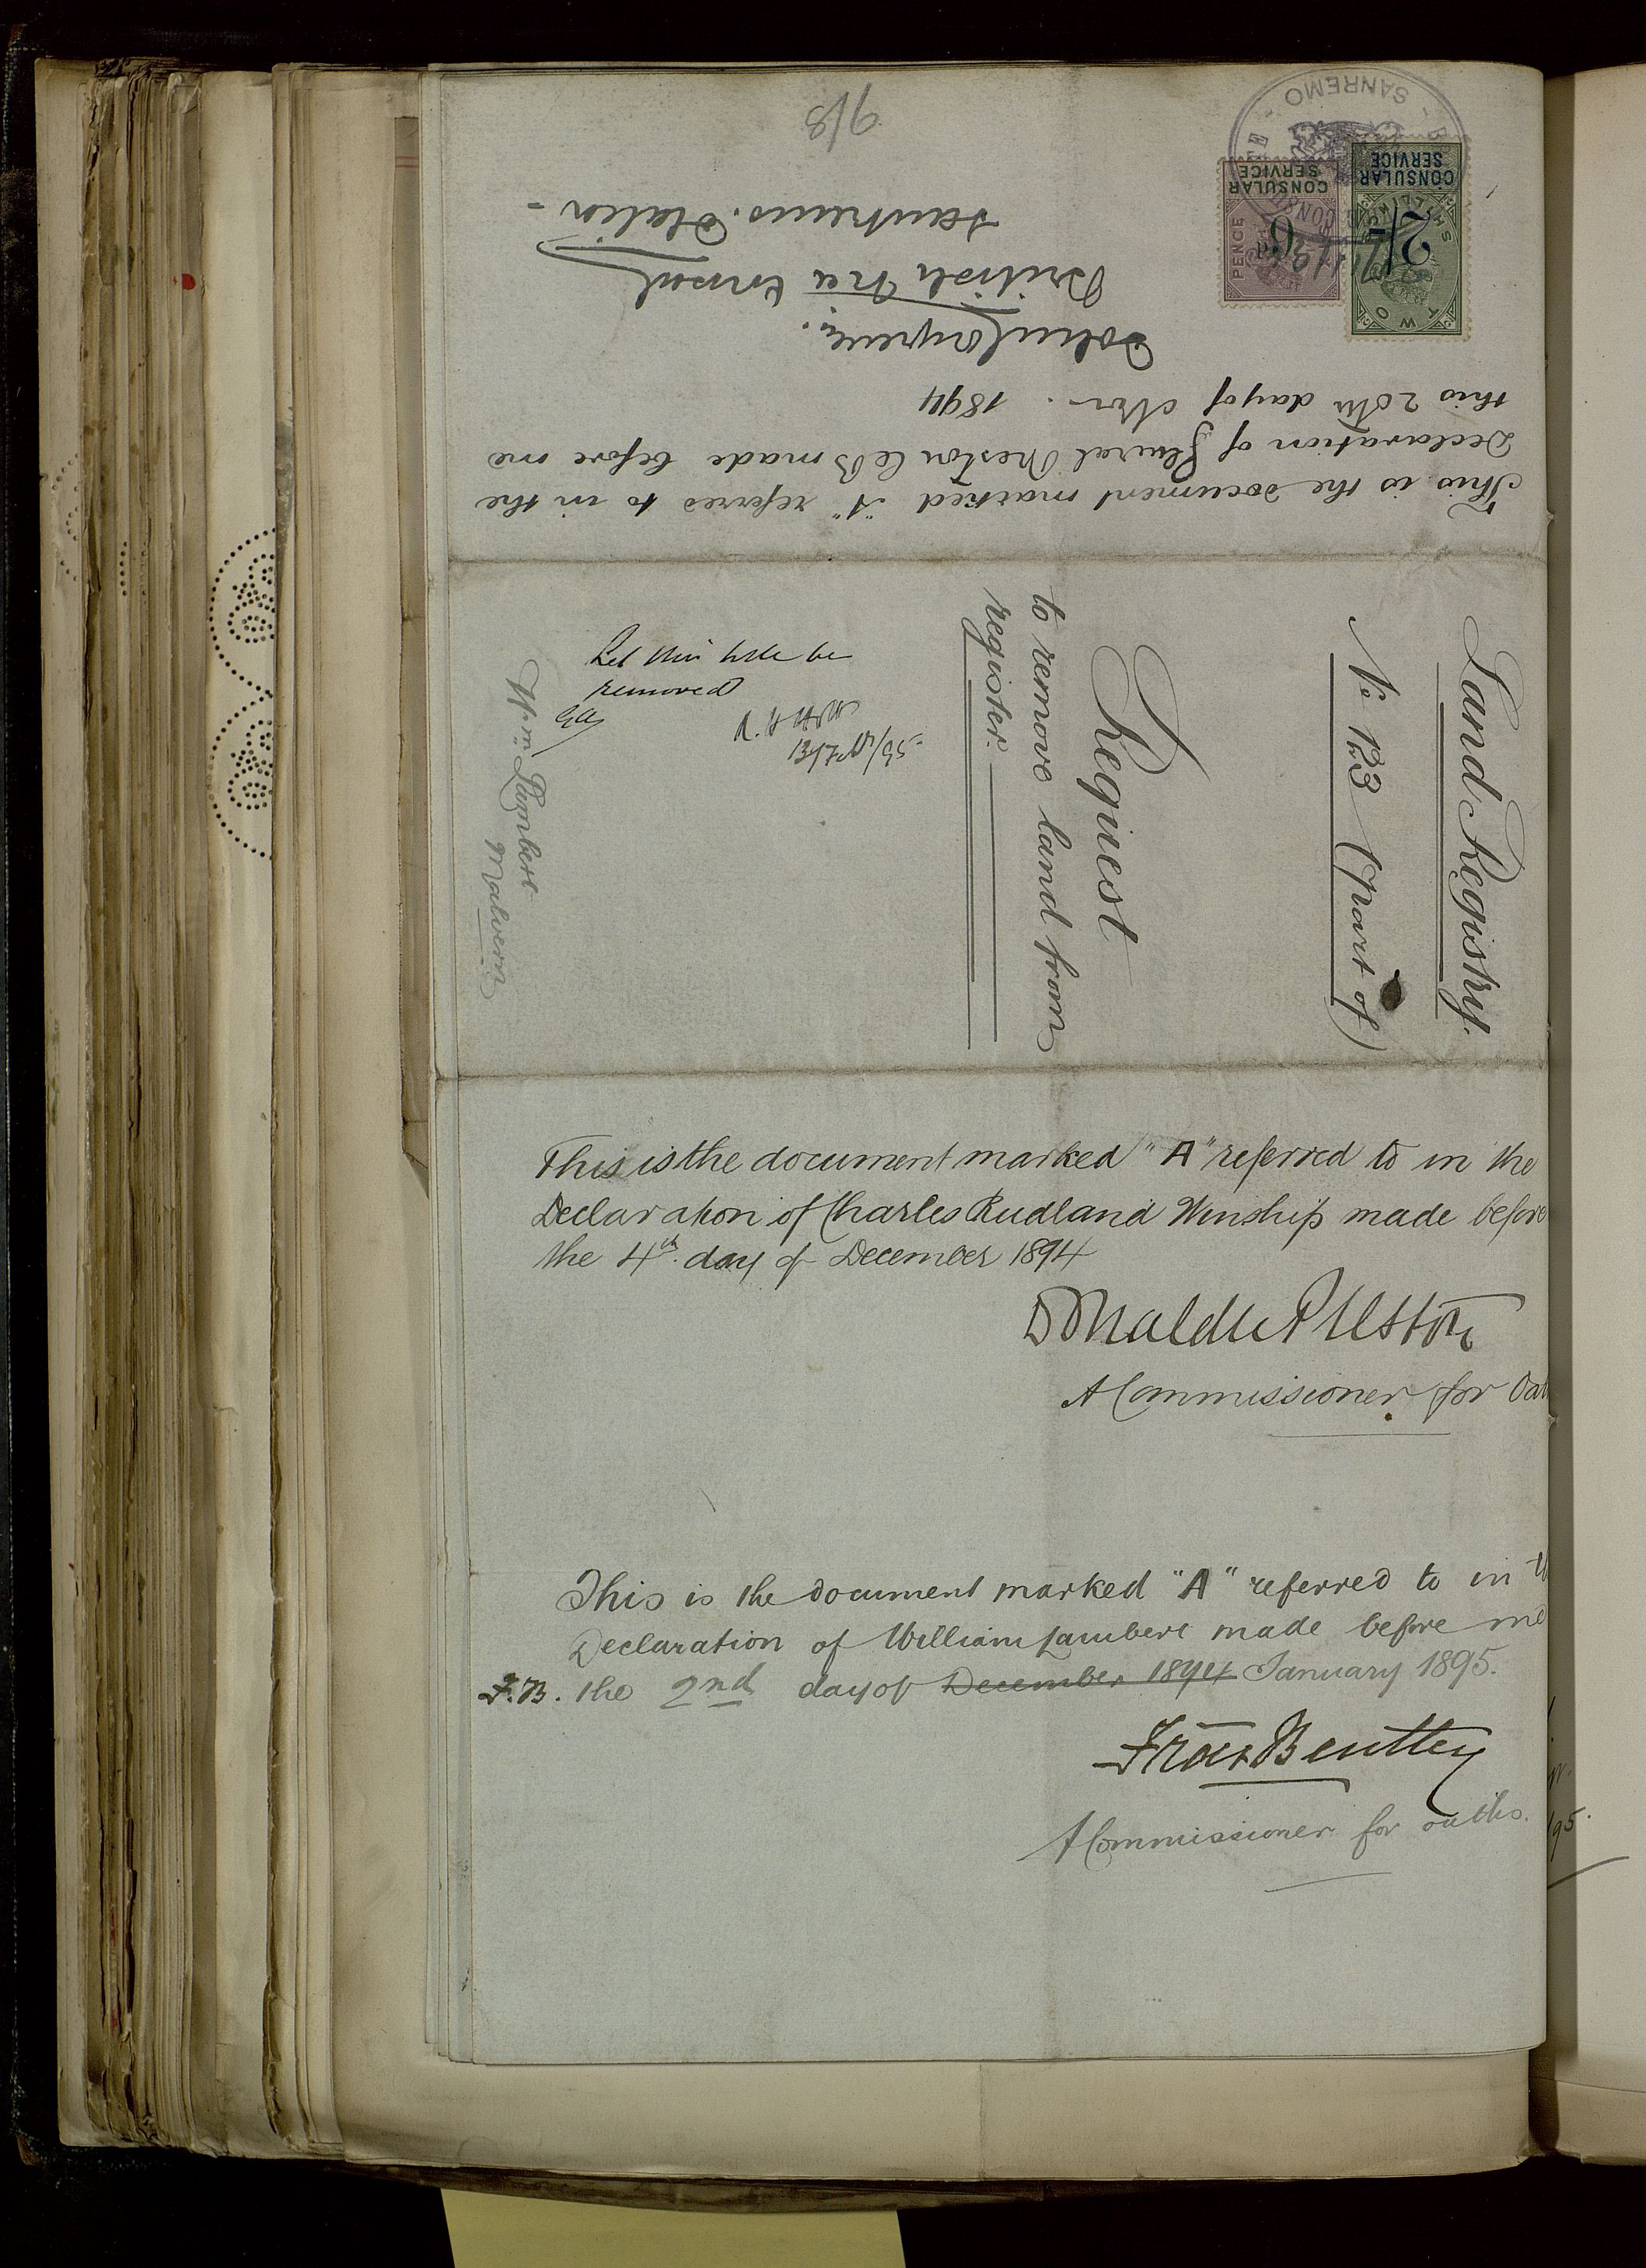 9/8
SANREMO
CONSULAR
SERVICE
PENCE
6
CONSULAR
SERVICE
TWO
2/-
This is the document marked "A" referred to in the
Declaration of General Preston CB made before me
this 20th day of Nov. 1894
British Vice Consul
Sanremo. Italia -
Land Registry.
No 123 (part of)
Request
to remove land from
register.
Let this title be
removed
Wm. Lambert
Malvern
This is the document marked "A" referred to in the
Declaration of Charles Rudland Winship made before
the 4th day of December 1894
A Commissioner for Oat
This is the document marked "A" referred to in
Declaration of William Lambert made before me
F.B. the 2nd day of December 1894 January 1895.
Fras Bentley
A Commissioner for oaths.
95.